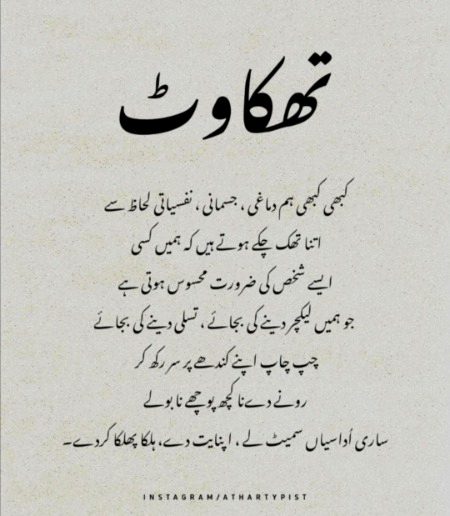 تھکاوٹ
کبھی کبھی ہم دماغی ، جسمانی ، نفسیاتی لحاظ سے
اتنا تھک چکے ہوتے ہیں کہ ہمیں کسی
ایسے شخص کی ضرورت محسوس ہوتی ہے
جو ہمیں لیکچر دینے کی بجائے ، تسلی دینے کی بجائے
چپ چاپ اپنے کندھے پر سر رکھ کر
رونے دے نا کچھ پوچھے نا بولے
ساری اُداسیاں سمیٹ لے ، اپنایت دے، ہلکا پھلکا کر دے۔
INSTAGRAM/ATHARTYPIST